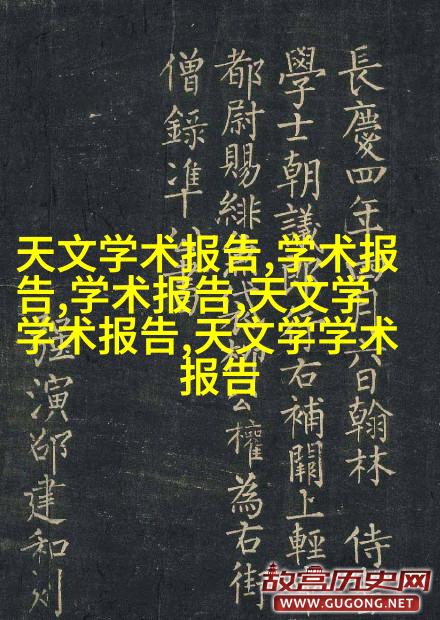 長慶四年 月六日翰林 侍
學士朝議郎 右補闕上輕
都尉賜緋 袋柳公權為右街
僧錄准
強演邵建和刻
天文学术报告,学术报
告,学术报告,天文学
学术报告,天文学学术
报告
故宫历史网
WWW.GUGONG.NET